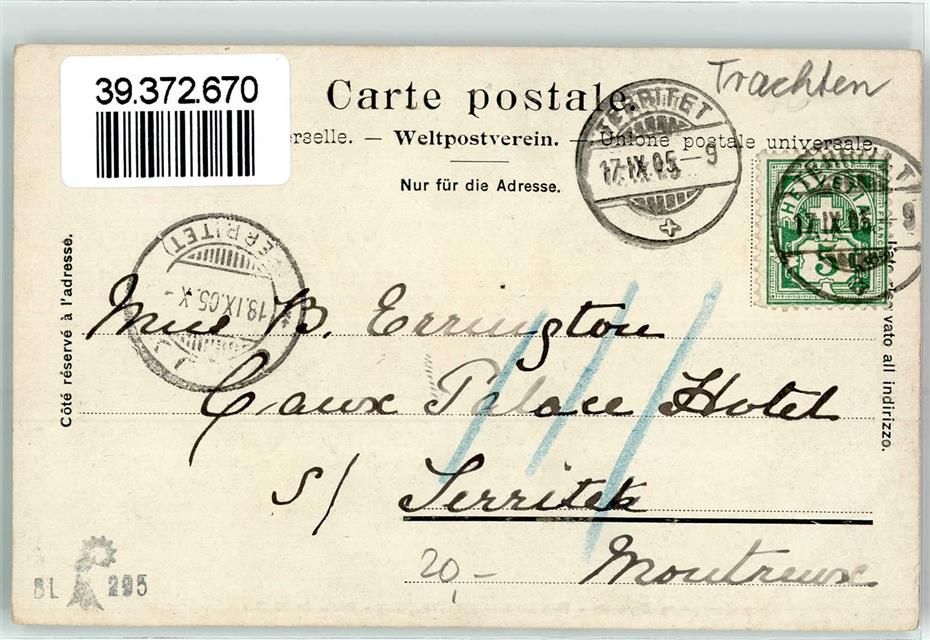 39.372.670
Trachten
Carte postale.
erselle. — Weltpostverein. — Unione postale universale.
Nur für die Adresse.
TERRITET
17.IX.05 - 9
HELVETIA
5
FRANCO
TERRITET
17.IX.05 9
TERRITET
18.IX.05.X
Côté réservé à l'adresse.
Lato riservato all indirizzo.
Mme B. Errington
Caux Palace Hotel
s/ Territet
Montreux
20 -
BL 295